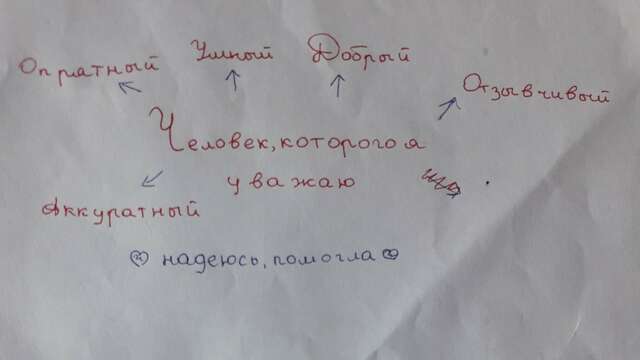 Опрятный
Умный
Добрый
Отзывчивый
Человек, которого я
уважаю
Аккуратный
надеюсь, помогла